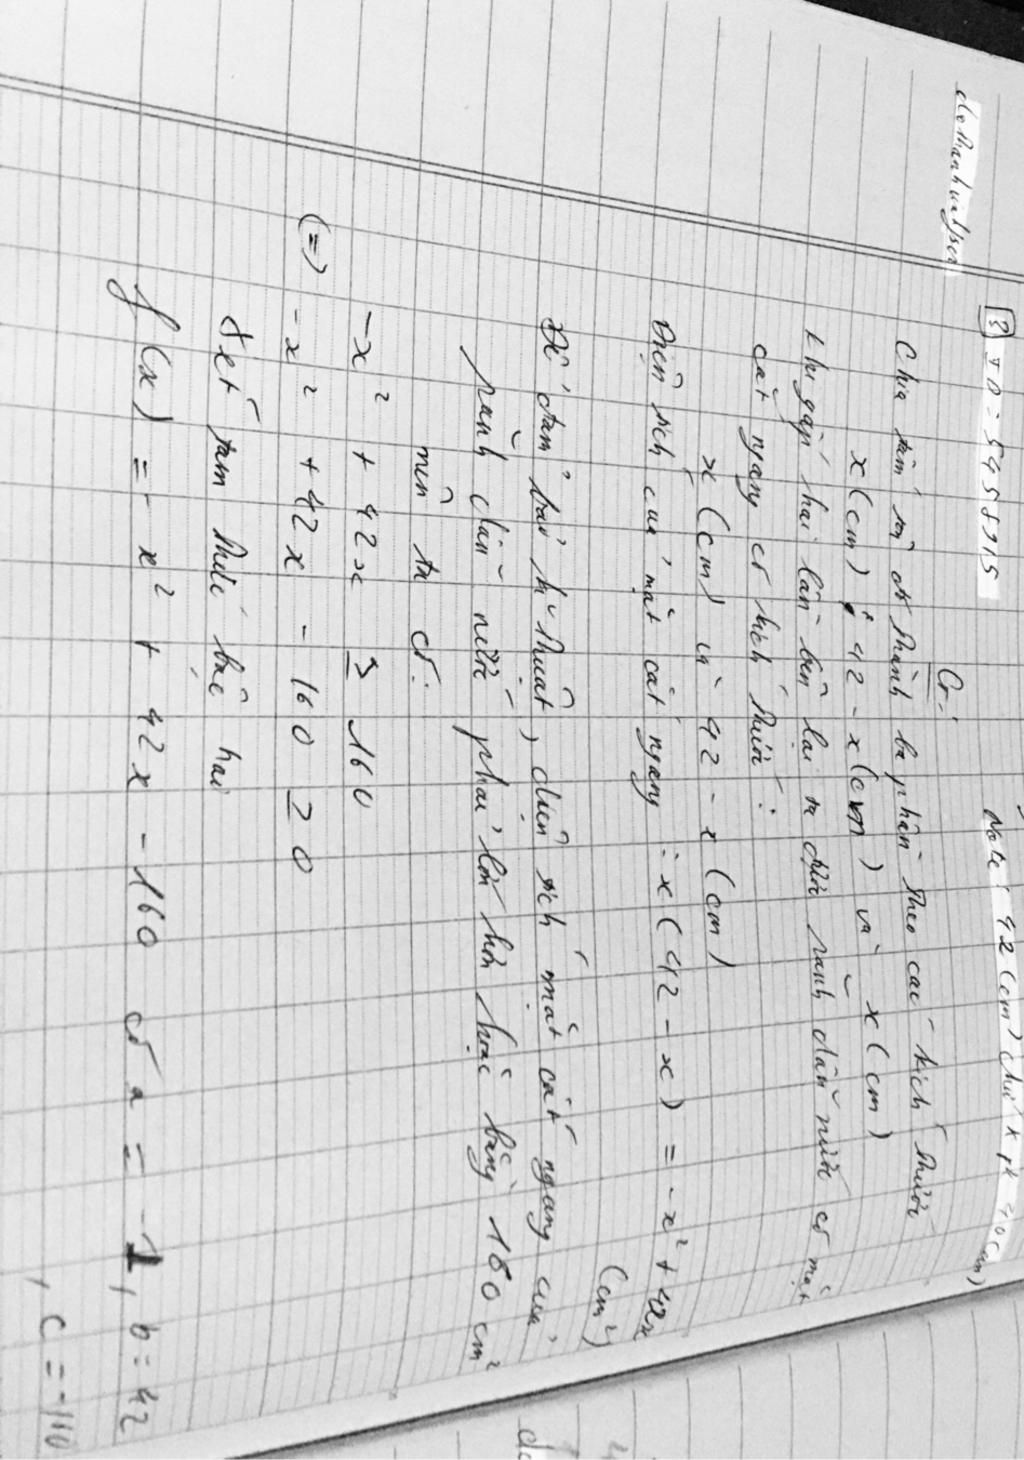 Note: 42 (cm) chứ k pk 40 (cm)
dothanhuatser
3 ID = 5458315
Có:
Chia tấm tôn đó thành ba phần theo các kích thước
x (cm) ; 42 - x (cm) và x (cm)
Khi gập hai lần bên lại ta được rãnh dẫn nước có mặt
cắt ngang có kích thước:
x (cm) và 42 - x (cm)
Diện tích của mặt cắt ngang : x (42 - x) = - x² + 42x
(cm²)
Để đảm bảo kĩ thuật, diện tích mặt cắt ngang của
rãnh dẫn nước phải lớn hơn hoặc bằng 160 cm²
nên ta có:
- x² + 42x ≥ 160
(=) - x² + 42x - 160 ≥ 0
Xét tam thức bậc hai
f (x) = - x² + 42x - 160 có a = -1, b = 42
, c = -110